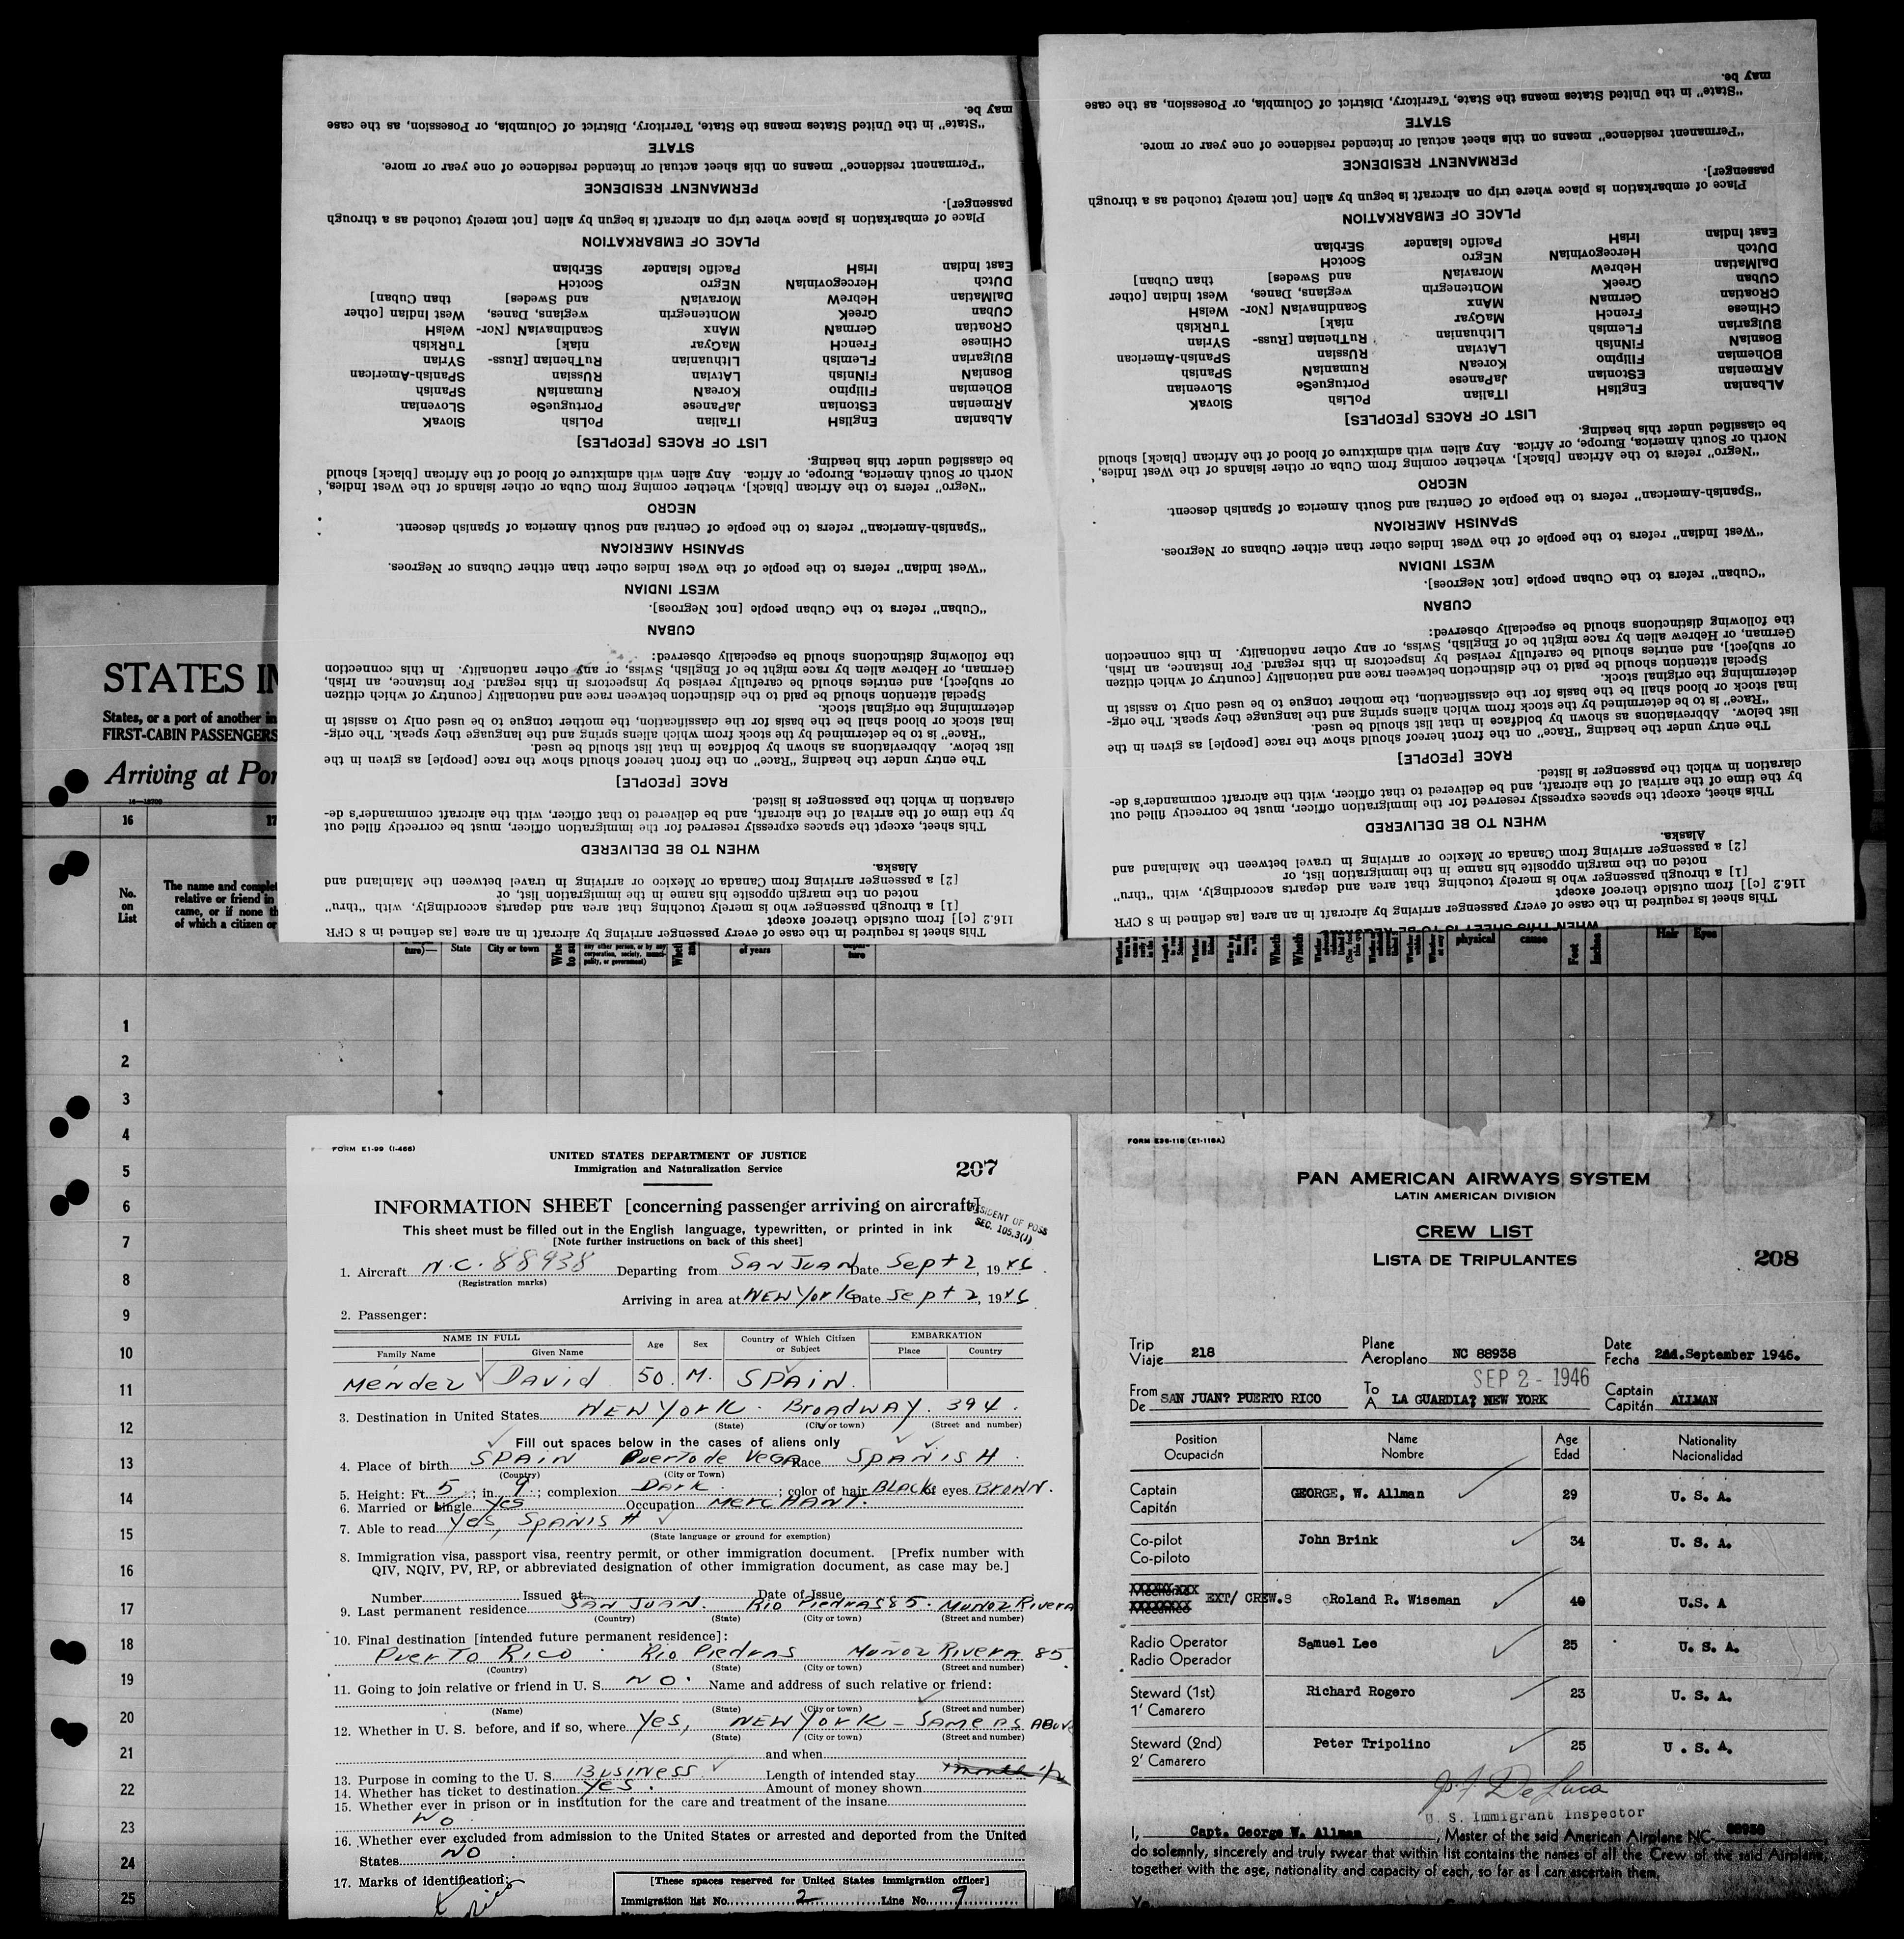 may be.
"State" in the United States means the State, Territory, District of Columbia, or Posession, as the case
STATE
"Permanent residence" means on this sheet actual or intended residence of one year or more.
PERMANENT RESIDENCE
passenger].
Place of embarkation is place where trip on aircraft is begun by alien [not merely touched as a through
PLACE OF EMBARKATION
East Indian IrisH Pacific Islander SErbian
DUtch HercegoviniaN NEgro ScotcH
DalMatian HebreW MoravaiN and Swedes] than Cuban]
CUban GreeK MOntenegrin wegians, Danes, West Indian [other
CROatian GermaN MAnx ScandinaviaN [Nor- WelsH
CHInese FrencH MaGyar niak] TurKish
BUlgarian FLemish LIthuanian RuThenian [Russ- SYrian
BosniaN FINnish LAtvian RUssian SPanish-American
BOhemian FIlipino KoreaN RumaniaN SPanish
ARmenian EStonian JaPanese PortugueSe SLovenian
ALbanian EnglisH ITalian PoLish SlovaK
LIST OF RACES [PEOPLES]
be classified under this heading.
North or South America, Europe, or Africa. Any alien with admixture of blood of the African [black] should
"Negro" refers to the African [black], whether coming from Cuba or other islands of the West Indies,
NEGRO
"Spanish-American" refers to the people of Central and South America of Spanish descent.
SPANISH AMERICAN
"West Indian" refers to the people of the West Indies other than either Cubans or Negroes.
WEST INDIAN
"Cuban" refers to the Cuban people [not Negroes].
CUBAN
the following distinctions should be especially observed:
German, or Hebrew alien by race might be of English, Swiss, or any other nationality. In this connection
or subject], and entries should be carefully revised by inspectors in this regard. For instance, an Irish,
Special attention should be paid to the distinction between race and nationality [country of which citizen
determining the original stock.
inal stock or blood shall be the basis for the classification, the mother tongue to be used only to assist in
"Race" is to be determined by the stock from which aliens spring and the language they speak. The orig-
list below. Abbreviations as shown by boldface in that list should be used.
The entry under the heading "Race" on the front hereof should show the race [people] as given in the
RACE [PEOPLE]
claration in which the passenger is listed.
by the time of the arrival of the aircraft, and be delivered to that officer, with the aircraft commander's de-
This sheet, except the spaces expressly reserved for the immigration officer, must be correctly filled out
WHEN TO BE DELIVERED
Alaska.
[2] a passenger arriving from Canada or Mexico or arriving in travel between the Mainland and
noted on the margin opposite his name in the immigration list, or
[1] a through passenger who is merely touching that area and departs accordingly, with "thru"
116.2 [c]] from outside thereof except
This sheet is required in the case of every passenger arriving by aircraft in an area [as defined in 8 CFR
may be.
"State" in the United States means the State, Territory, District of Columbia, or Posession, as the case
STATE
"Permanent residence" means on this sheet actual or intended residence of one year or more.
PERMANENT RESIDENCE
passenger].
Place of embarkation is place where trip on aircraft is begun by alien [not merely touched as a through
PLACE OF EMBARKATION
East Indian IrisH Pacific Islander SErbian
DUtch HercegoviniaN NEgro ScotcH
DalMatian HebreW MoravaiN and Swedes] than Cuban]
CUban GreeK MOntenegrin wegians, Danes, West Indian [other
CROatian GermaN MAnx ScandinaviaN [Nor- WelsH
CHInese FrencH MaGyar niak] TurKish
BUlgarian FLemish LIthuanian RuThenian [Russ- SYrian
BosniaN FINnish LAtvian RUssian SPanish-American
BOhemian FIlipino KoreaN RumaniaN SPanish
ARmenian EStonian JaPanese PortugueSe SLovenian
ALbanian EnglisH ITalian PoLish SlovaK
LIST OF RACES [PEOPLES]
be classified under this heading.
North or South America, Europe, or Africa. Any alien with admixture of blood of the African [black] should
"Negro" refers to the African [black], whether coming from Cuba or other islands of the West Indies,
NEGRO
"Spanish-American" refers to the people of Central and South America of Spanish descent.
SPANISH AMERICAN
"West Indian" refers to the people of the West Indies other than either Cubans or Negroes.
WEST INDIAN
"Cuban" refers to the Cuban people [not Negroes].
CUBAN
the following distinctions should be especially observed:
German, or Hebrew alien by race might be of English, Swiss, or any other nationality. In this connection
or subject], and entries should be carefully revised by inspectors in this regard. For instance, an Irish,
Special attention should be paid to the distinction between race and nationality [country of which citizen
determining the original stock.
inal stock or blood shall be the basis for the classification, the mother tongue to be used only to assist in
"Race" is to be determined by the stock from which aliens spring and the language they speak. The orig-
list below. Abbreviations as shown by boldface in that list should be used.
The entry under the heading "Race" on the front hereof should show the race [people] as given in the
RACE [PEOPLE]
claration in which the passenger is listed.
by the time of the arrival of the aircraft, and be delivered to that officer, with the aircraft commander's de-
This sheet, except the spaces expressly reserved for the immigration officer, must be correctly filled out
WHEN TO BE DELIVERED
Alaska.
[2] a passenger arriving from Canada or Mexico or arriving in travel between the Mainland and
noted on the margin opposite his name in the immigration list, or
[1] a through passenger who is merely touching that area and departs accordingly, with "thru"
116.2 [c]] from outside thereof except
This sheet is required in the case of every passenger arriving by aircraft in an area [as defined in 8 CFR
STATES
States, or a port of another
FIRST-CABIN PASSENGERS
Arriving at
16
No.
on
List
The name and
relative or friend in
came, or if none
of which a citizen or
ture)— State City or town of years ture physical cause Feet Inches Hair Eyes
1
2
3
4
5
6
7
8
9
10
11
12
13
14
15
16
17
18
19
20
21
22
23
24
25
FORM E1-99 (I-466)
UNITED STATES DEPARTMENT OF JUSTICE
Immigration and Naturalization Service
207
INFORMATION SHEET [concerning passenger arriving on aircraft]
RESIDENT OF POSS
SEC. 105.3(1)
This sheet must be filled out in the English language, typewritten, or printed in ink
[Note further instructions on back of this sheet]
1. Aircraft N.C. 88938 Departing from SAN JUAN Date Sept 2, 1946.
(Registration marks)
Arriving in area at NEW York Date Sept 2, 1946
2. Passenger:
NAME IN FULL Age Sex Country of Which Citizen or Subject EMBARKATION
Family Name Given Name Place Country
Mendez David 50. M. SPAIN.
3. Destination in United States NEW York. Broadway. 394.
(State) (City or town) (Street and number)
Fill out spaces below in the cases of aliens only
4. Place of birth SPAIN Puerto de Vega Race SPANISH
(Country) (City or Town)
5. Height: Ft. 5; in. 9; complexion Dark; color of hair BLACK; eyes BROWN.
6. Married or single Yes Occupation MercHANT.
7. Able to read Yes, SPANISH
(State language or ground for exemption)
8. Immigration visa, passport visa, reentry permit, or other immigration document. [Prefix number with
QIV, NQIV, PV, RP, or abbreviated designation of other immigration document, as case may be.]
Number Issued at Date of Issue
9. Last permanent residence SAN JUAN. Rio Piedras 85. Muñoz Rivera
(Country) (State) (City or town) (Street and number)
10. Final destination [intended future permanent residence]:
Puerto Rico. Rio Piedras Muñoz Rivera 85.
(Country) (State) (City or town) (Street and number)
11. Going to join relative or friend in U. S. NO. Name and address of such relative or friend:
(Name) (State) (City or town) (Street and number)
12. Whether in U. S. before, and if so, where Yes, NEW York - SAME AS ABOVE
(State) (City or town) (Street and number)
and when
13. Purpose in coming to the U. S. Business Length of intended stay month 1/2
14. Whether has ticket to destination Yes. Amount of money shown
15. Whether ever in prison or in institution for the care and treatment of the insane
NO
16. Whether ever excluded from admission to the United States or arrested and deported from the United
States NO
17. Marks of identification:
[These spaces reserved for United States immigration officer]
Immigration list No. 2 Line No. 9
FORM E96-118 (E1-118A)
PAN AMERICAN AIRWAYS SYSTEM
LATIN AMERICAN DIVISION
CREW LIST
LISTA DE TRIPULANTES
208
Trip Plane Date
Viaje 218 Aeroplano NC 88938 Fecha 2nd. September 1946.
SEP 2 - 1946
From To Captain
De SAN JUAN? PUERTO RICO A LA GUARDIA? NEW YORK Capitán ALLMAN
Position Name Age Nationality
Ocupación Nombre Edad Nacionalidad
Captain GEORGE, W. Allman 29 U. S. A.
Capitán
Co-pilot John Brink 34 U. S. A.
Co-piloto
Mechanic EXT/ CREW.S Roland R. Wiseman 40 U.S. A
Mecánico
Radio Operator Samuel Lee 25 U. S. A.
Radio Operador
Steward (1st) Richard Rogero 23 U. S. A.
1' Camarero
Steward (2nd) Peter Tripolino 25 U . S. A.
2' Camarero
De Luca
U. S. Immigrant Inspector
I, Capt. George W. Allman, Master of the said American Airplane NC- 88938,
do solemnly, sincerely and truly swear that within list contains the names of all the Crew of the said Airplane,
together with the age, nationality and capacity of each, so far as I can ascertain them.